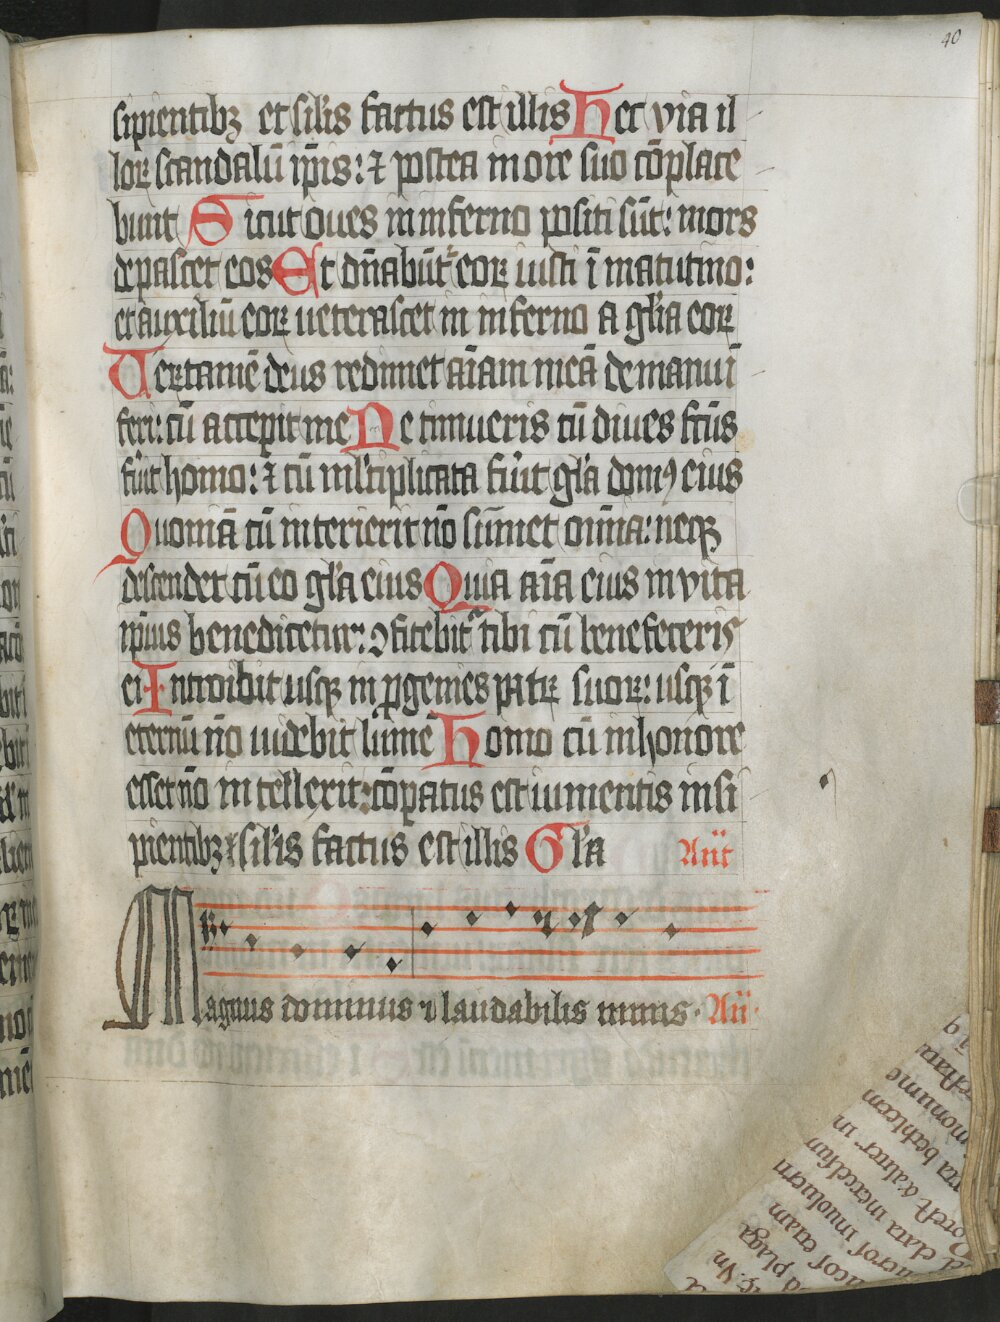 40
sipientibꝫ et silis factus est illis Hec via il
loꝝ scandalū ip̄is: ⁊ postea in ore suo cōplace
bunt Sicut oues in inferno positi sūt: mors
depascet eos Et dn̄abūt eoꝝ iusti ī matutino:
et auxiliū eoꝝ ueterascet in inferno a glīa eoꝝ
Uerūtamē deus redimet aīam meā de manu ī
feri: cū acceperit me Ne timueris cū diues fc̄us
fūit homo: ⁊ cū mltiplicata fūit glā domꝰ eius
Quoniā cū interierit nō sumet omīa: neqꝫ
descendet cū eo glā eius Quia aīa eius in vita
ip̄ius benedicetur: ꝯfitebit tibi cū benefeceris
ei Introibit usqꝫ in ꝓgenies patꝝ suoꝝ: usqꝫ ī
eternū nō uidebit lumē Homo cū in honore
esset nō intellexit: cōparatus est iumentis insi
pientibꝫ ⁊ silis factus est illis Glā Añt
Magnus dominus ⁊ laudabilis nimis. Añ